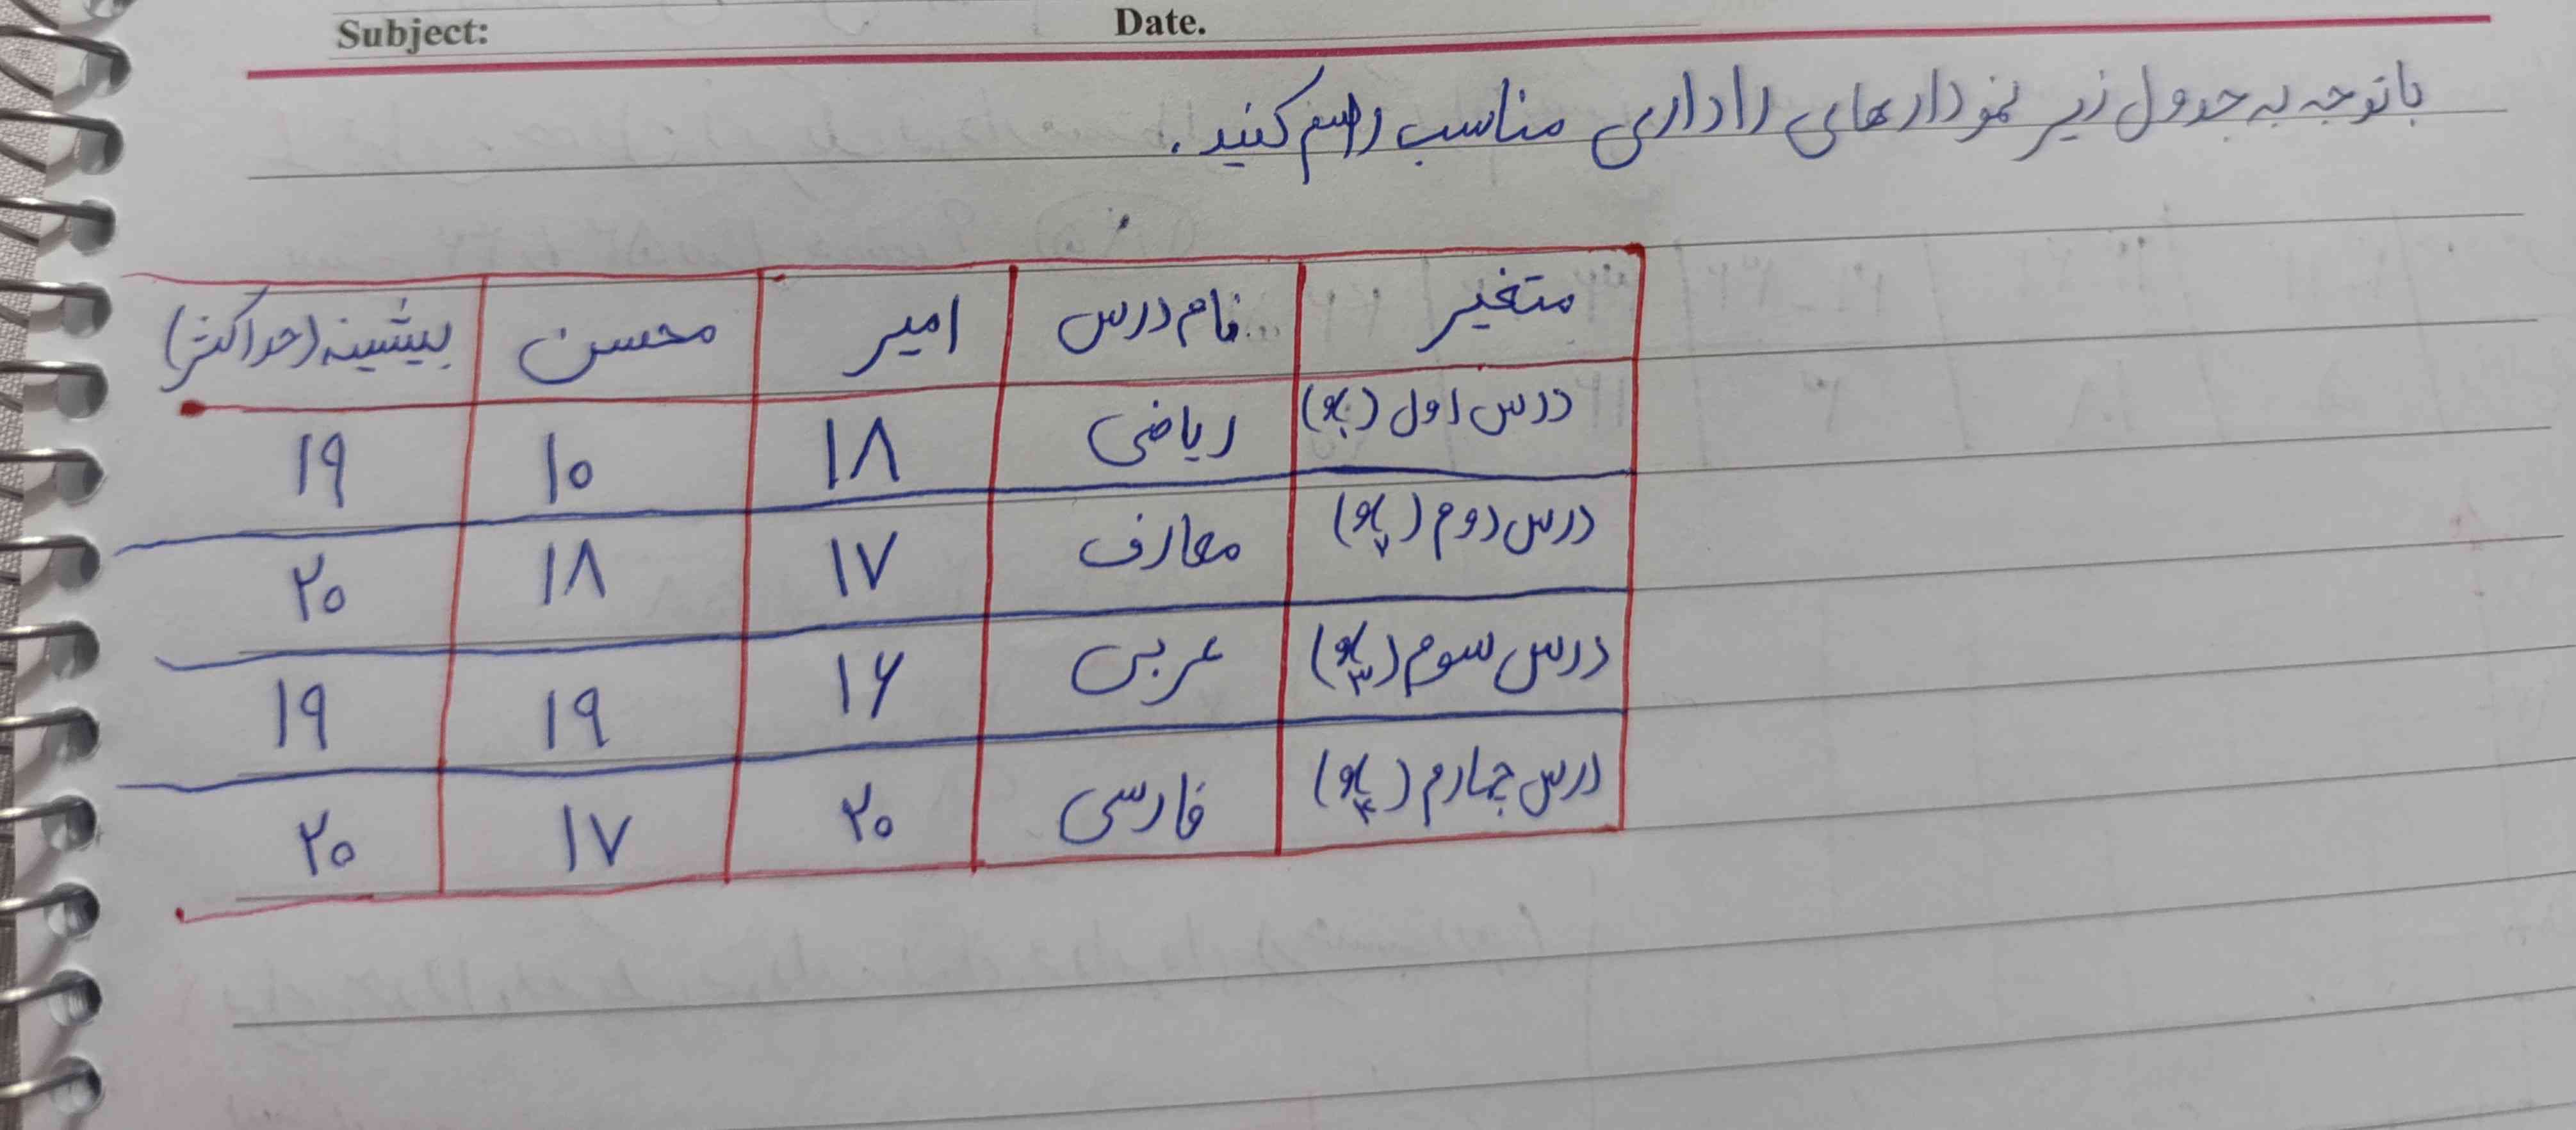 Subject: Date.
با توجه به جدول زیر نمودارهای راداری مناسب رسم کنید.
متغیر نام درس امیر محسن بیشینه (حداکثر)
درس اول (x۱) ریاضی ۱۸ ۱۰ ۱۹
درس دوم (x۲) معارف ۱۷ ۱۸ ۲۰
درس سوم (x۳) عربی ۱۶ ۱۹ ۱۹
درس چهارم (x۴) فارسی ۲۰ ۱۷ ۲۰